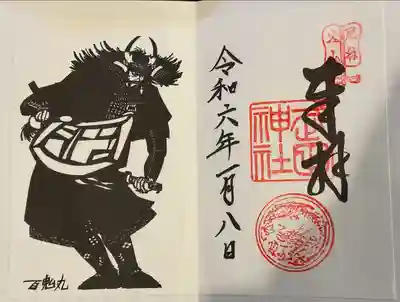 奉拝
武田
神社
令和六年一月八日
百鬼丸